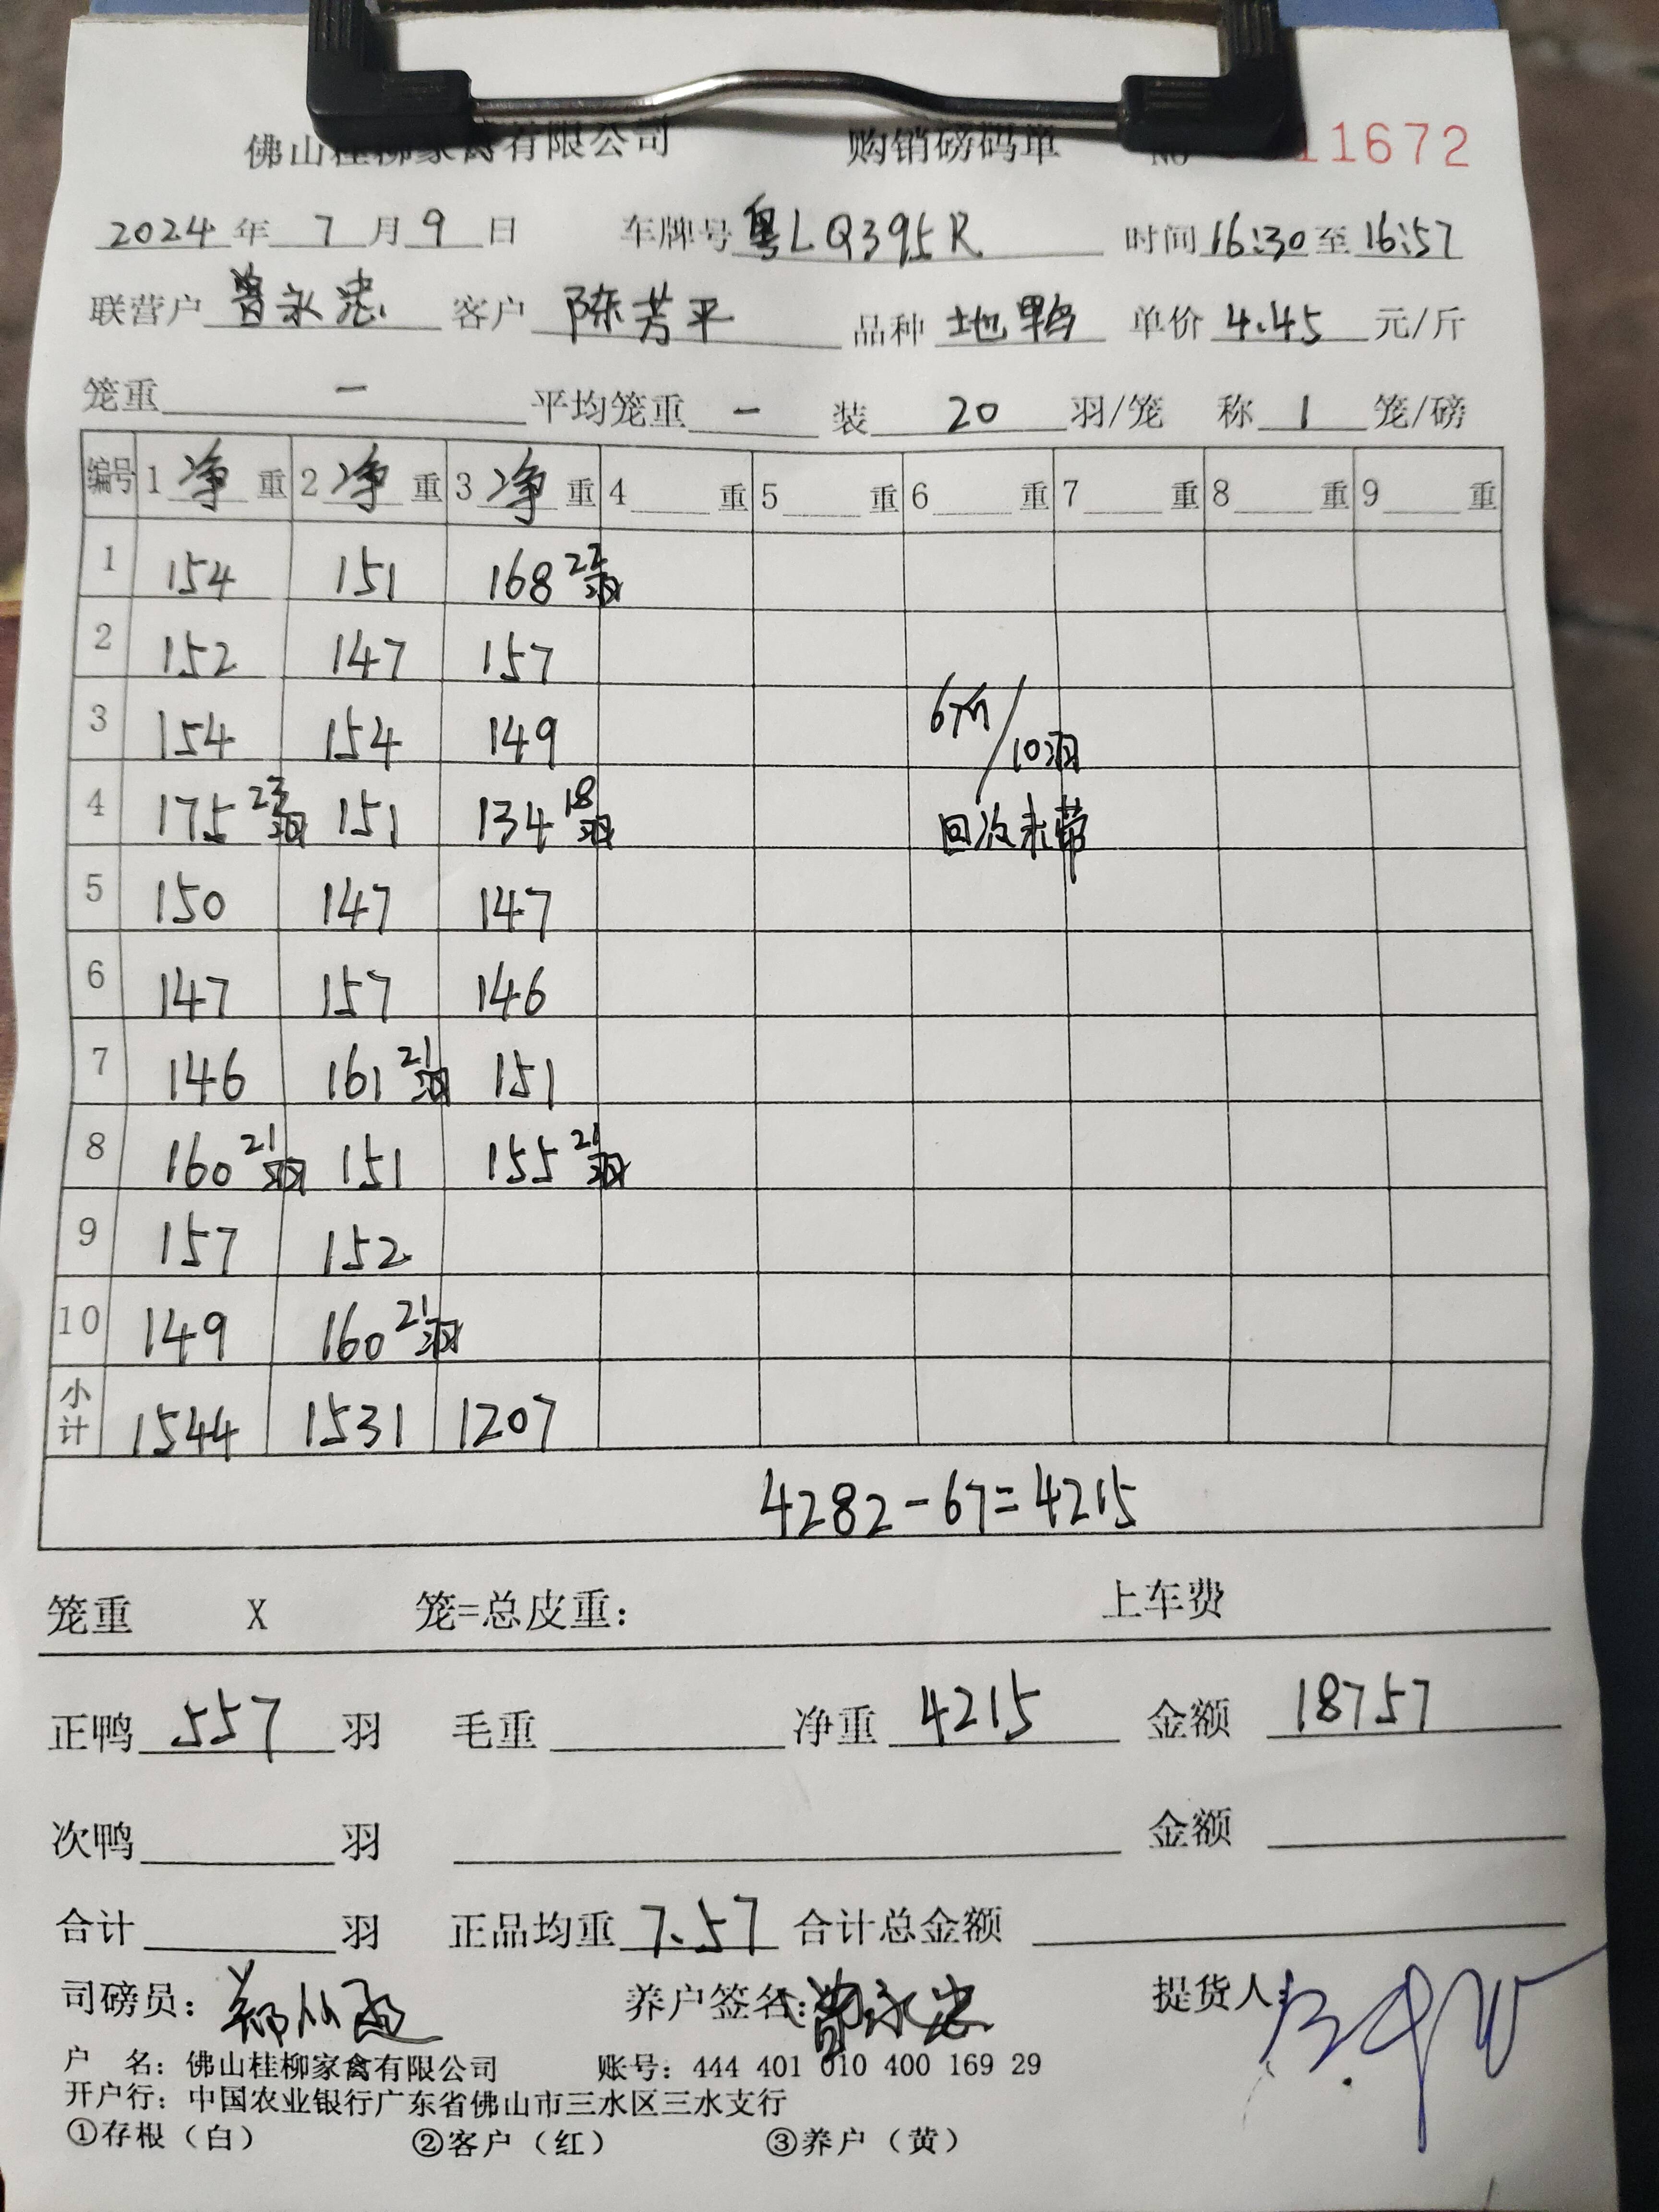 佛山桂柳家禽有限公司 购销磅码单 NO 11672
2024年 7月 9日 车牌号 粤LQ395R 时间 16:30 至 16:57
联营户 曾永忠 客户 陈芳平 品种 地鸭 单价 4.45 元/斤
笼重 — 平均笼重 — 装 20 羽/笼 称 1 笼/磅
编号 1 净 重 2 净 重 3 净 重 4 重 5 重 6 重 7 重 8 重 9 重
1 154 151 168 22羽
2 152 147 157
3 154 154 149
4 175 23羽 151 134 18羽
5 150 147 147
6 147 157 146
7 146 161 21羽 151
8 160 21羽 151 155 21羽
9 157 152
10 149 160 21羽
小计 1544 1531 1207
67斤/10羽
回次未带
4282-67=4215
笼重 X 笼=总皮重: 上车费
正鸭 557 羽 毛重 净重 4215 金额 18757
次鸭 羽 金额
合计 羽 正品均重 7.57 合计总金额
司磅员: 养户签名: 曾永忠 提货人:
户 名: 佛山桂柳家禽有限公司 账号: 444 401 010 400 169 29
开户行: 中国农业银行广东省佛山市三水区三水支行
①存根(白) ②客户(红) ③养户(黄)